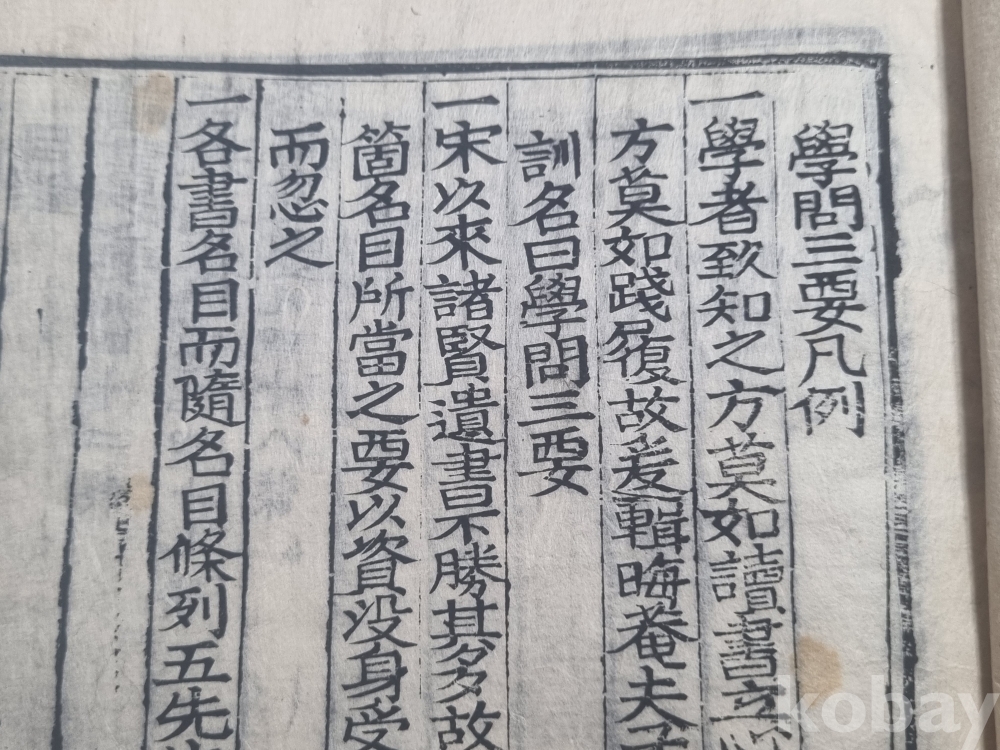 學問三要凡例
一學者致知之方莫如讀書立
方莫如踐履故爰輯晦菴夫子
訓名曰學問三要
一宋以來諸賢遺書不勝其多故
箇名目所當之要以資没身受
而忽之
一各書名目而隨名目條列五先
kobay